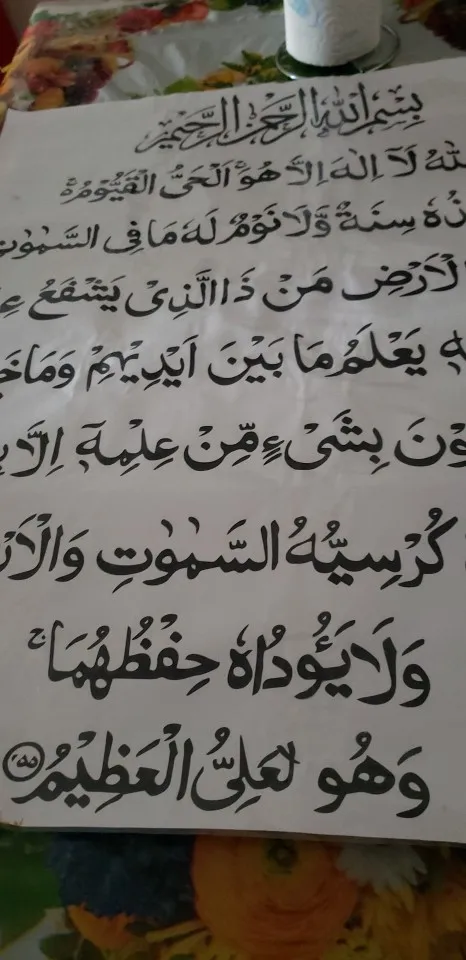 بِسْمِ اللهِ الرَّحْمٰنِ الرَّحِيْمِ
لَآ اِلٰهَ اِلَّا هُوَ ۚ اَلْحَىُّ الْقَيُّوْمُ ۚ
سِنَةٌ وَّلَا نَوْمٌ لَهٗ مَا فِى السَّمٰوٰتِ
الْاَرْضِ مَنْ ذَا الَّذِىْ يَشْفَعُ
يَعْلَمُ مَا بَيْنَ اَيْدِيْهِمْ وَمَا
بِشَىْءٍ مِّنْ عِلْمِهٖٓ اِلَّا
كُرْسِيُّهُ السَّمٰوٰتِ وَالْاَرْ
وَلَا يَـُٔوْدُهٗ حِفْظُهُمَا ۚ
وَهُوَ الْعَلِىُّ الْعَظِيْمُ ۲۵۵